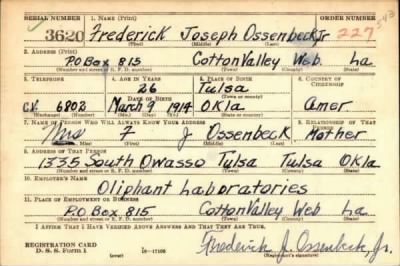 SERIAL NUMBER 1. NAME (Print) ORDER NUMBER
3620 Frederick Joseph Ossenbeck Jr 227
(First) (Middle) (Last)
2. ADDRESS (Print)
P.O Box 815 Cotton Valley Web. La
(Number and street or R. F. D. number) (Town) (County) (State)
3. TELEPHONE 4. AGE IN YEARS 5. PLACE OF BIRTH 6. COUNTRY OF CITIZENSHIP
26 Tulsa
DATE OF BIRTH (Town or county)
C.V. 6802 March 9 1914 Okla Amer
(Mo.) (Day) (Yr.) (State or country)
7. NAME OF PERSON WHO WILL ALWAYS KNOW YOUR ADDRESS 8. RELATIONSHIP OF THAT PERSON
Mrs F J Ossenbeck Mother
(Mr., Mrs., Miss) (First) (Middle) (Last)
9. ADDRESS OF THAT PERSON
1335 South Owasso Tulsa Tulsa Okla
(Number and street or R. F. D. number) (Town) (County) (State)
10. EMPLOYER'S NAME
Oliphant Laboratories
11. PLACE OF EMPLOYMENT OR BUSINESS
P.O. Box 815 Cotton Valley Web La
(Number and street or R. F. D. number) (Town) (County) (State)
I AFFIRM THAT I HAVE VERIFIED ABOVE ANSWERS AND THAT THEY ARE TRUE.
REGISTRATION CARD
D. S. S. Form 1 Frederick J. Ossenbeck, Jr.
(Registrant's signature)